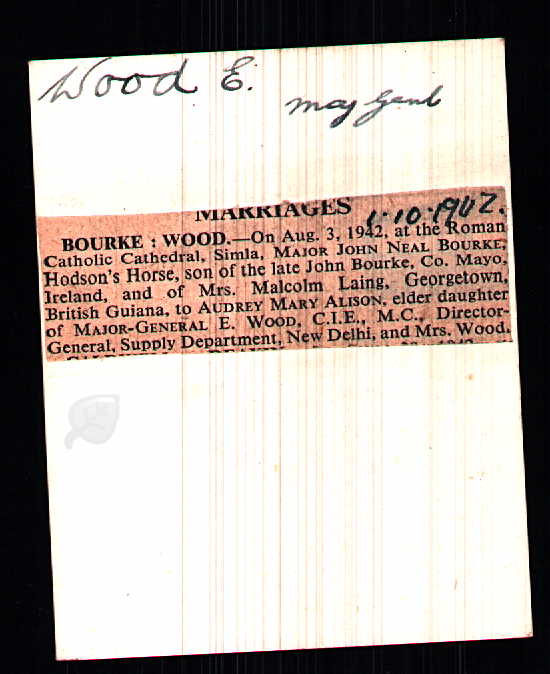 Wood E.
Maj Genl
MARRIAGES 1.10.1942.
BOURKE : WOOD.—On Aug. 3, 1942, at the Roman
Catholic Cathedral, Simla, MAJOR JOHN NEAL BOURKE,
Hodson's Horse, son of the late John Bourke, Co. Mayo,
Ireland, and of Mrs. Malcolm Laing, Georgetown,
British Guiana, to AUDREY MARY ALISON, elder daughter
of MAJOR-GENERAL E. WOOD, C.I.E., M.C., Director-
General, Supply Department, New Delhi, and Mrs. Wood.